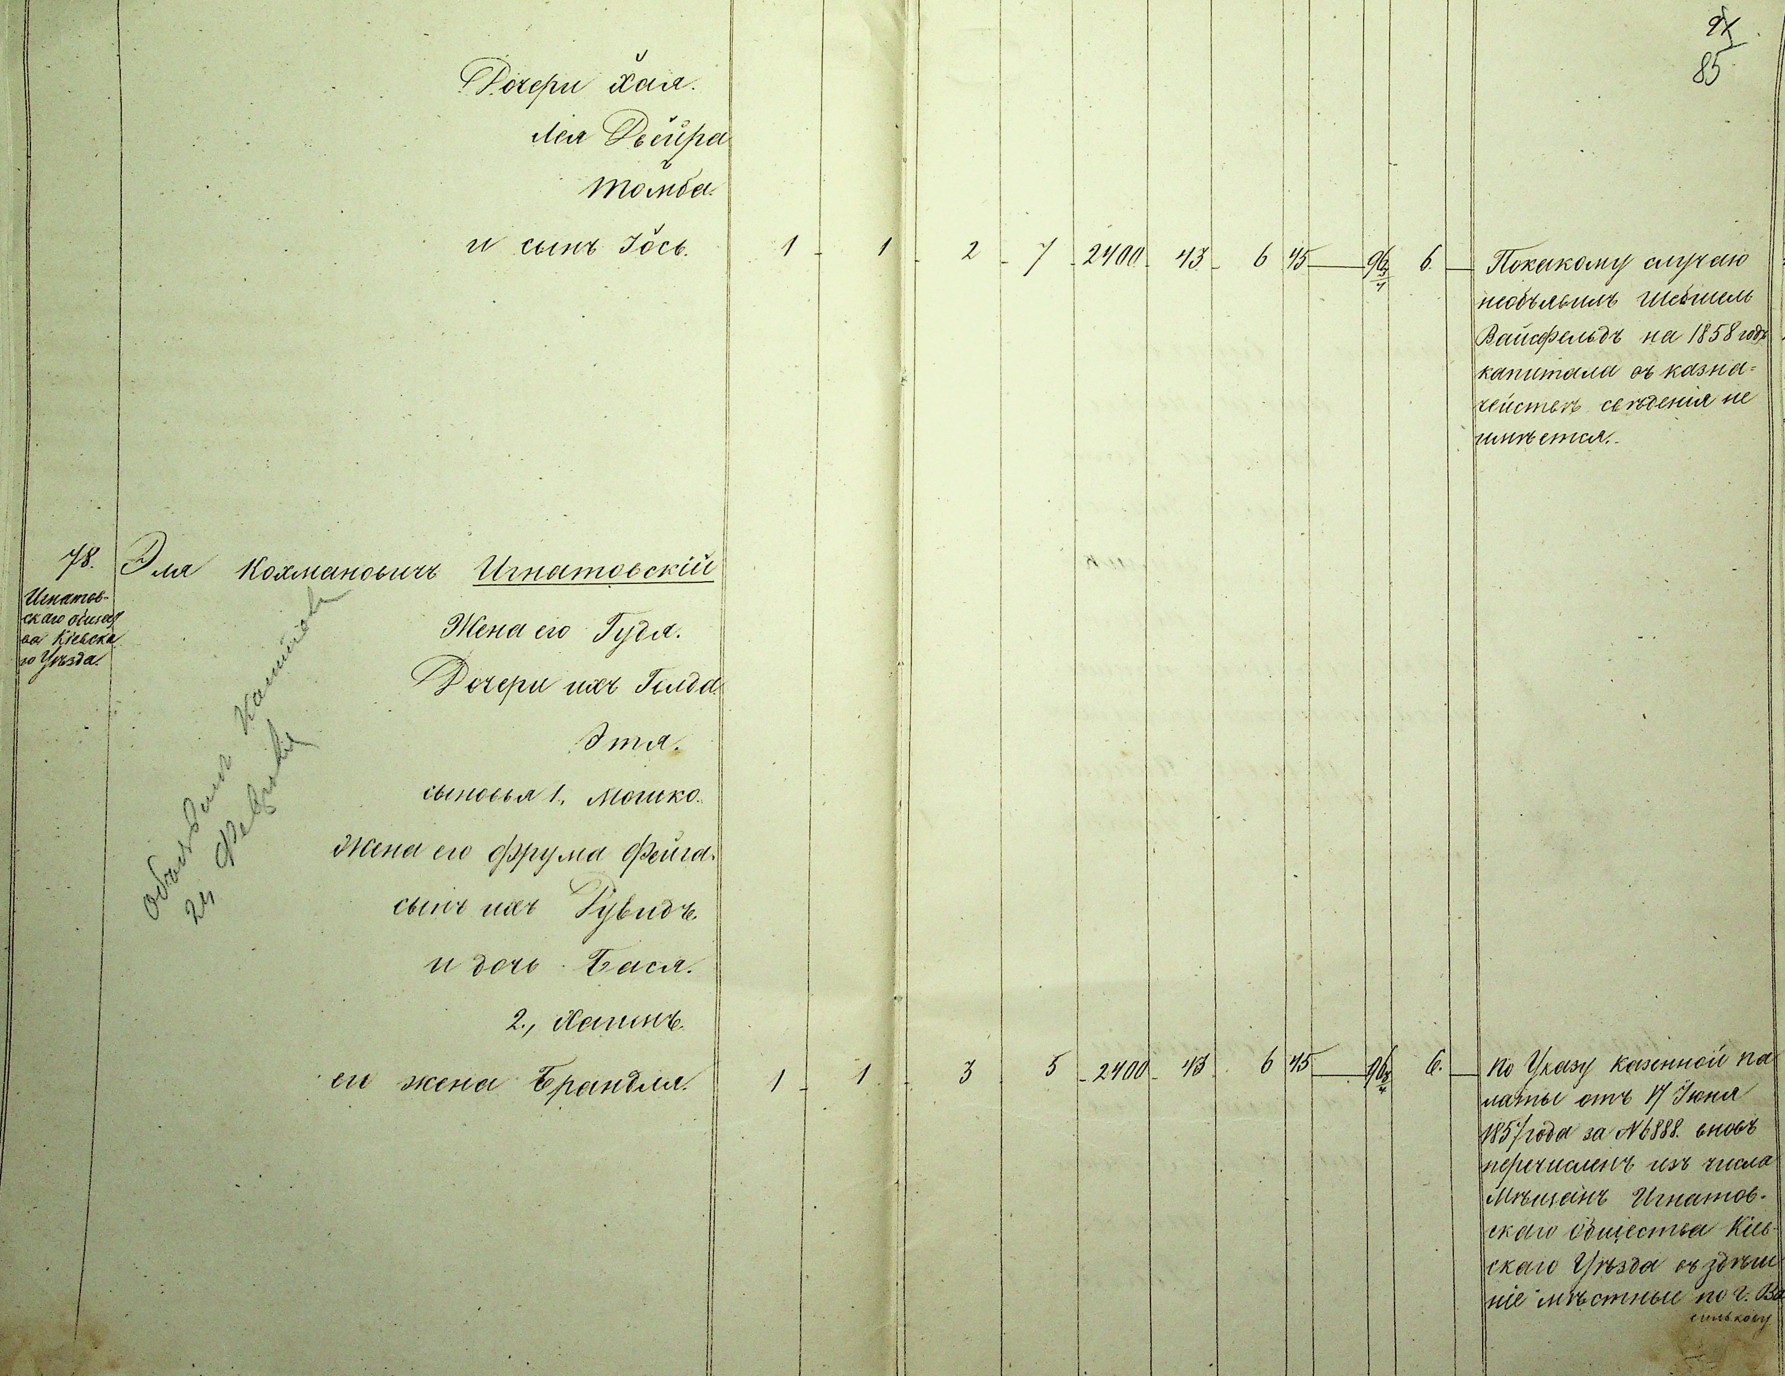 85
Дочери Хая.
Лея Двейра
Томба.
и сынъ Іось.
1 - 1 - 2 - 7 - 2400 - 43 - 6 45 — 96 6. —
Покакому случаю
необъявилъ Шевшель
Вайсфельдъ на 1858 годъ
капитала въ казна=
чействѣ свѣденія не
имѣется.
78. Эля Кохмановичъ Игнатовскій
Игнатов-
скаго общест
ва Кіевска
го Уѣзда.
Жена его Гудя.
Дочери ихъ Голда.
Этя.
сыновья 1, Мошко.
Жена его Фрума Фейга.
сынъ ихъ Рувидъ.
и дочь Бася.
2., Хаимъ.
его жена Брандля.
1 - 1 - 3 5 - 2400 - 43 6 45 — 96 6. —
объявилъ капиталъ
24 Февраля
По Указу казенной па
латы отъ 17 Іюня
1857 года за №6888. вновь
перечисленъ изъ числа
Мѣщанъ Игнатов-
скаго общества Кіев-
скаго Уѣзда въ здѣш
ніе мѣстные по г. Ва
силькову